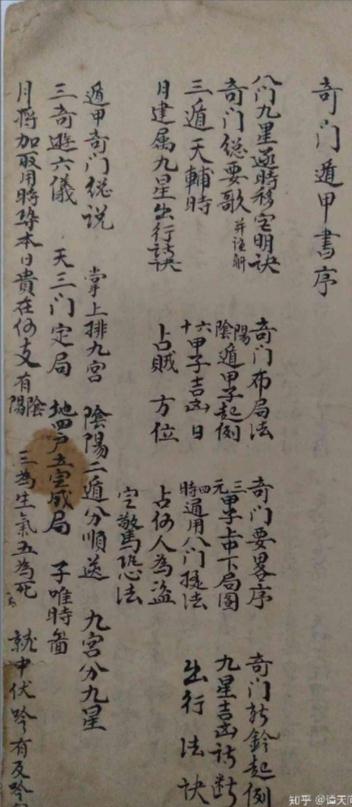 奇门遁甲書序
八门九星逐時移宮明訣 奇门布局法 奇门要畧序 奇门
奇门總要歌并注解 陰陽遁甲子起例 三元甲子上中下局圖 九星吉凶
三遁天輔時 六十甲子吉凶日 四時通用八门 法 出行法訣
月建属九星出行訣 占賊方位 占何人為盗
空驚恐法
遁甲奇门總说 掌上排九宮 陰陽二遁分順逆 九宮分九星
三奇遊六儀 天三门定局 地四户五定成局 子唯時
月将加取用時 本日貴在何支有陰陽 三為生氣五為死 就中伏吟有反吟
知乎